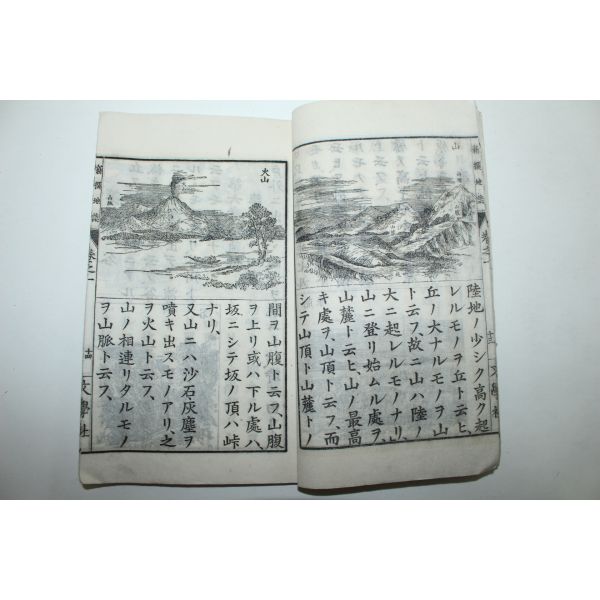 山
陸地ノ少シク高ク起
レルモノヲ丘ト云ヒ、
丘ノ大ナルモノヲ山
ト云フ、故ニ山ハ陸ノ
大ニ起レルモノナリ、
山ニ登リ始ムル處ヲ
山麓ト云ヒ、山ノ最高
キ處ヲ、山頂ト云フ、而
シテ山頂ト山麓トノ
新撰地誌
卷之一
十三
文學社
火山
間ヲ山腹ト云フ、山腹
ヲ上リ或ハ下ル處ハ、
坂ニシテ坂ノ頂ハ峠
ナリ、
又山ニハ沙石灰塵ヲ
噴キ出スモノアリ、之
ヲ火山ト云フ、
山ノ相連リタルモノ
ヲ山脈ト云フ、
新撰地誌
卷之一
十四
文學社